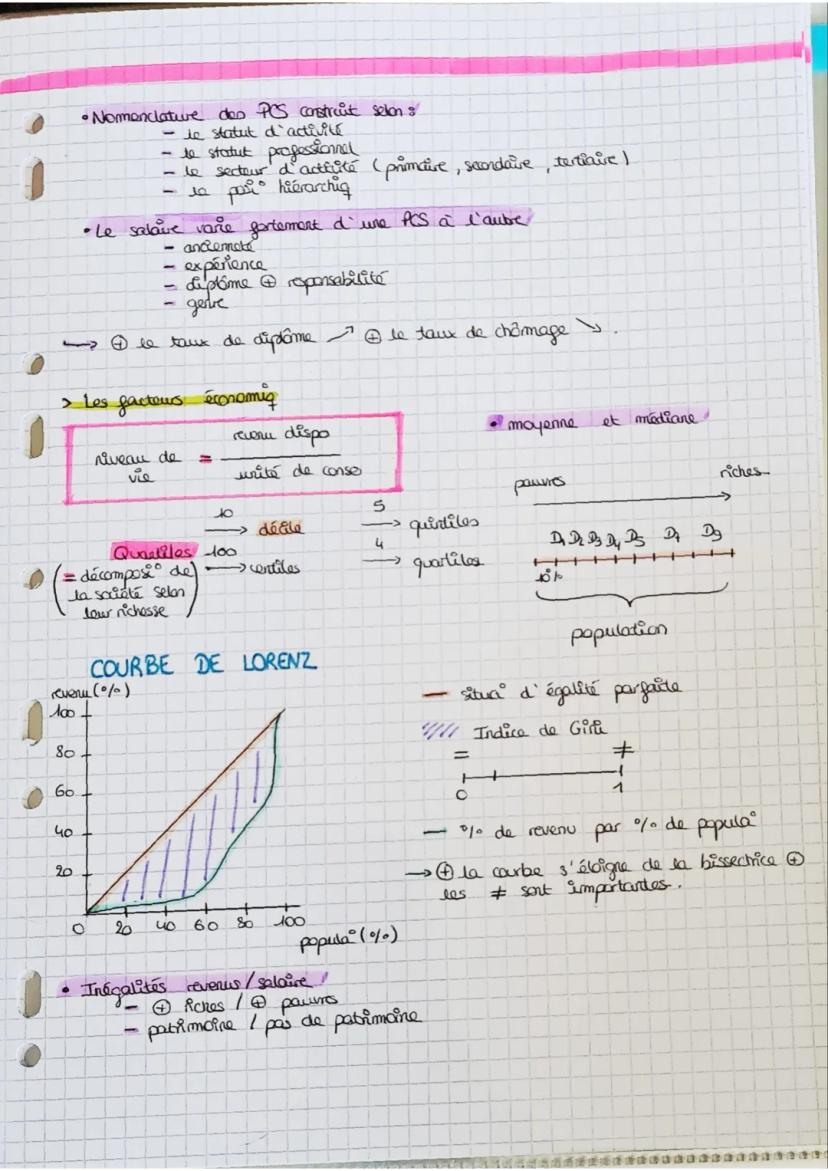 • Nomenclature des PCS construit selon :
- le statut d'activité
- le statut professionnel
- le secteur d'activité (primaire, secondaire, tertiaire)
- la posi° hiérarchiq
• Le salaire varie fortement d'une PCS à l'autre
- ancienneté
- expérience
- diplôme ⊕ responsabilité
- genre
↪ ⊕ le taux de diplôme ↗ ⊕ le taux de chômage ↘.
> Les facteurs économiq
niveau de vie = revenu dispo / unité de conso
• moyenne et médiane
pauvres → riches
D1 D2 D3 D4 D5 D7 D9
10%
population
Quantiles
(= décomposi° de
la société selon
leur richesse)
10 → décile
100 → centiles
5 → quintiles
4 → quartiles
COURBE DE LORENZ
revenu (%)
100
80
60
40
20
0 20 40 60 80 100
popula° (%)
— situa° d'égalité parfaite
//// Indice de Gini
= ≠
0 1
— % de revenu par % de popula°
→ ⊕ la courbe s'éloigne de la bissectrice ⊕
les ≠ sont importantes.
• Inégalités revenus / salaire
- ⊕ riches / ⊕ pauvres
- patrimoine / pas de patrimoine